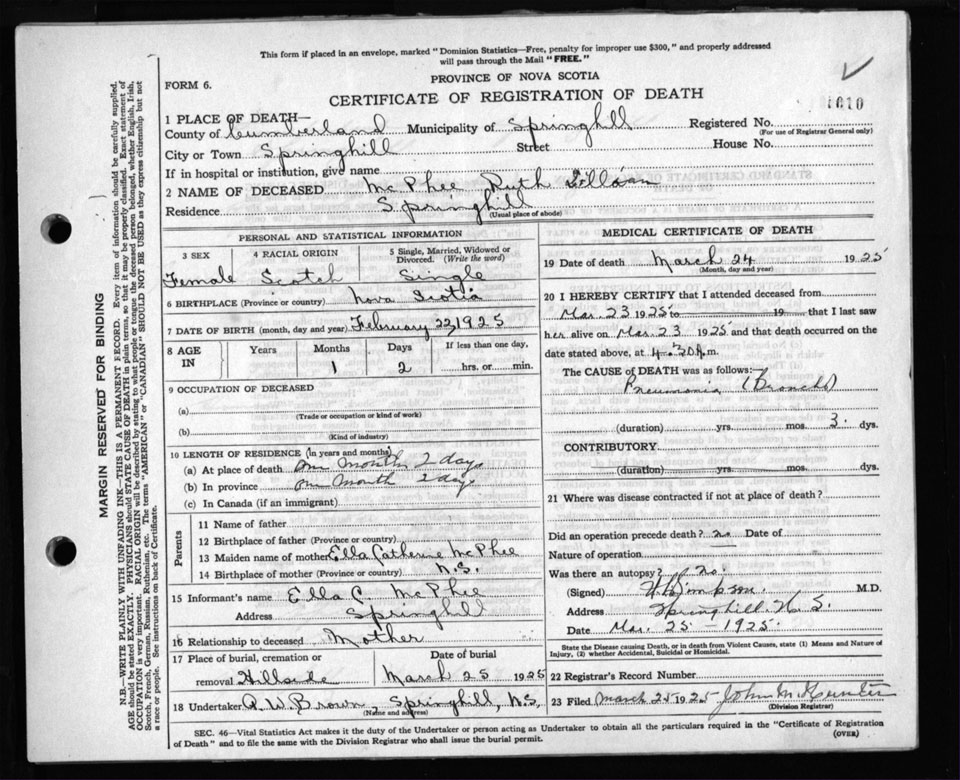 This form if placed in an envelope, marked "Dominion Statistics—Free, penalty for improper use $300," and properly addressed
will pass through the Mail "FREE."
PROVINCE OF NOVA SCOTIA
FORM 6.
CERTIFICATE OF REGISTRATION OF DEATH
1010
1 PLACE OF DEATH—
County of Cumberland Municipality of Springhill Registered No.
(For use of Registrar General only)
City or Town Springhill Street House No.
If in hospital or institution, give name
2 NAME OF DECEASED McPhee Ruth
Residence Springhill
(Usual place of abode)
PERSONAL AND STATISTICAL INFORMATION
3 SEX 4 RACIAL ORIGIN 5 Single, Married, Widowed or
Divorced. (Write the word)
Female Scotch Single
6 BIRTHPLACE (Province or country) Nova Scotia
7 DATE OF BIRTH (month, day and year) February 22, 1925
8 AGE IN Years Months Days If less than one day,
1 2 hrs. or min.
9 OCCUPATION OF DECEASED
(a)
(Trade or occupation or kind of work)
(b)
(Kind of industry)
10 LENGTH OF RESIDENCE (in years and months)
(a) At place of death one month 2 days
(b) In province one month 2 days
(c) In Canada (if an immigrant)
Parents
11 Name of father
12 Birthplace of father (Province or country)
13 Maiden name of mother Ella Catherine McPhee
14 Birthplace of mother (Province or country) N.S.
15 Informant's name Ella C. McPhee
Address Springhill
16 Relationship to deceased Mother
17 Place of burial, cremation or Date of burial
removal Hillside March 25 1925
18 Undertaker A. W. Brown, Springhill, N.S.
(Name and address)
MEDICAL CERTIFICATE OF DEATH
19 Date of death March 24 1925
(Month, day and year)
20 I HEREBY CERTIFY that I attended deceased from
Mar. 23 1925 to 19 that I last saw
her alive on Mar. 23 1925 and that death occurred on
date stated above, at 4.30 m.
The CAUSE of DEATH was as follows:—
Pneumonia (Bronchl)
(duration) yrs. mos. 3 dys.
CONTRIBUTORY
(duration) yrs. mos. dys.
21 Where was disease contracted if not at place of death?
Did an operation precede death? no Date of
Nature of operation
Was there an autopsy? no.
(Signed) Simpson. M.D.
Address Springhill N.S.
Date Mar. 25 – 1925.
State the Disease causing Death, or in death from Violent Causes, state (1) Means and Nature of
Injury, (2) whether Accidental, Suicidal or Homicidal.
22 Registrar's Record Number
23 Filed March 25 1925 John M. Hunter
(Division Registrar)
SEC. 46—Vital Statistics Act makes it the duty of the Undertaker or person acting as Undertaker to obtain all the particulars required in the "Certificate of Registration
of Death" and to file the same with the Division Registrar who shall issue the burial permit.
(OVER)
MARGIN RESERVED FOR BINDING
N.B.—WRITE PLAINLY WITH UNFADING INK—THIS IS A PERMANENT RECORD. Every item of information should be carefully supplied.
AGE should be stated EXACTLY. PHYSICIANS should STATE CAUSE OF DEATH in plain terms, so that it may be properly classified. Exact statement of
OCCUPATION is very important. RACIAL ORIGIN will be described by stating to what people or tongue the deceased person belonged, whether English, Irish,
Scotch, French, German, Russian, Ruthenian, etc. The terms "AMERICAN" or "CANADIAN" SHOULD NOT BE USED as they express citizenship but not
a race or people. See instructions on back of Certificate.